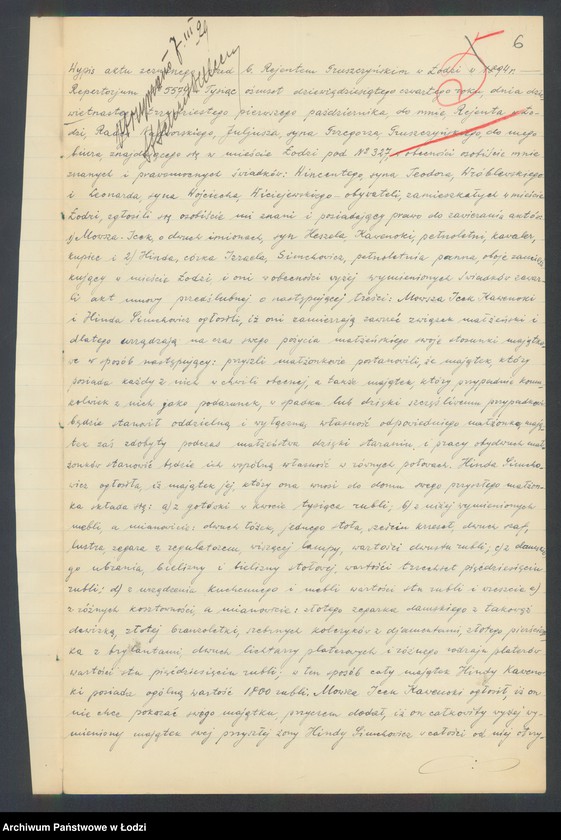 6
Otrzymano 7.III 29
Wypis aktu zeznanego przed b. Rejentem Gruszczyńskim w Łodzi w 1894 r.
Repertorjum 5549 Tysiąc ośmset dziewięćdziesiątego czwartego roku, dnia dzie
więtnastego trzydziestego pierwszego października, do mnie Rejenta w Ło-
dzi, Juljusza, syna Grzegorza Gruszczyńskiego, do mego
biura, znajdującego się w mieście Łodzi pod № 327 w obecności osobiście mnie
znanych i prawomocnych świadków: Wincentego, syna Teodora, Wróblewskiego
i Leonarda, syna Wojciecha, Wiciejewskiego – obywateli, zamieszkałych w mieście
Łodzi, zgłosili się osobiście mi znani i posiadający prawo do zawierania aktów
1) Mowsza-Icek, o dwuch imionach, syn Heszela Kawenoki, pełnoletni, kawaler,
kupiec i 2) Hinda, córka Izraela, Simchowicz, pełnoletnia panna, oboje zamiesz
kujący w mieście Łodzi i oni w obecności wyżej wymienionych świadków zawar
li akt umowy przedślubnej o następującej treści: Mowsza Icek Kawenoki
i Hinda Simchowicz ogłosili, iż oni zamierzają zawrzeć związek małżeński i
dlatego urządzają na czas swego pożycia małżeńskiego swoje stosunki majątko
we w sposób następujący: przyszli małżonkowie postanowili, że majątek, który
posiada każdy z nich w chwili obecnej, a także majątek, który przypadnie komu
kolwiek z nich jako podarunek, w spadku lub dzięki szczęśliwemu przypadkowi
będzie stanowił oddzielną i wyłączną własność odpowiedniego małżonka mają-
tek zaś zdobyty podczas małżeństwa dzięki staraniu i pracy obydwuch mał-
żonków stanowić będzie ich wspólną własność w równych połowach. Hinda Simcho
wicz ogłosiła, iż majątek jej, który ona wnosi do domu swego przyszłego małżon-
ka składa się: a) z gotówki w kwocie tysiąca rubli; b) z niżej wymienionych
mebli, a mianowicie: dwuch łóżek, jednego stołu, sześciu krzeseł, dwuch szaf,
lustra, zegara z regulatorem, wiszącej lampy, wartości dwustu rubli; c) z damskie
go ubrania, bielizny i bielizny stołowej wartości trzechset pięćdziesięciu
rubli; d) z urządzenia kuchennego i mebli wartości stu rubli i wreszcie e)
z różnych kosztowności, a mianowicie: złotego zegarka damskiego z takowąż
dewizką, złotej branzoletki, srebrnych kolczyków z djamentami, złotego pierścion
ka z brylantami dwuch lichtarzy platerowych i różnego rodzaju platerów
wartości stu pięćdziesięciu rubli; w ten sposób cały majątek Hindy Kaweno-
ki posiada ogólną wartość 1800 rubli. Mowsza Icek Kawenoki ogłosił, iż on
nie chce pokazać swego majątku, przyczem dodał, iż on całkowity wyżej wy-
mieniony majątek swej przyszłej żony Hindy Simchowicz w całości od niej otrzy-
Archiwum Państwowe w Łodzi